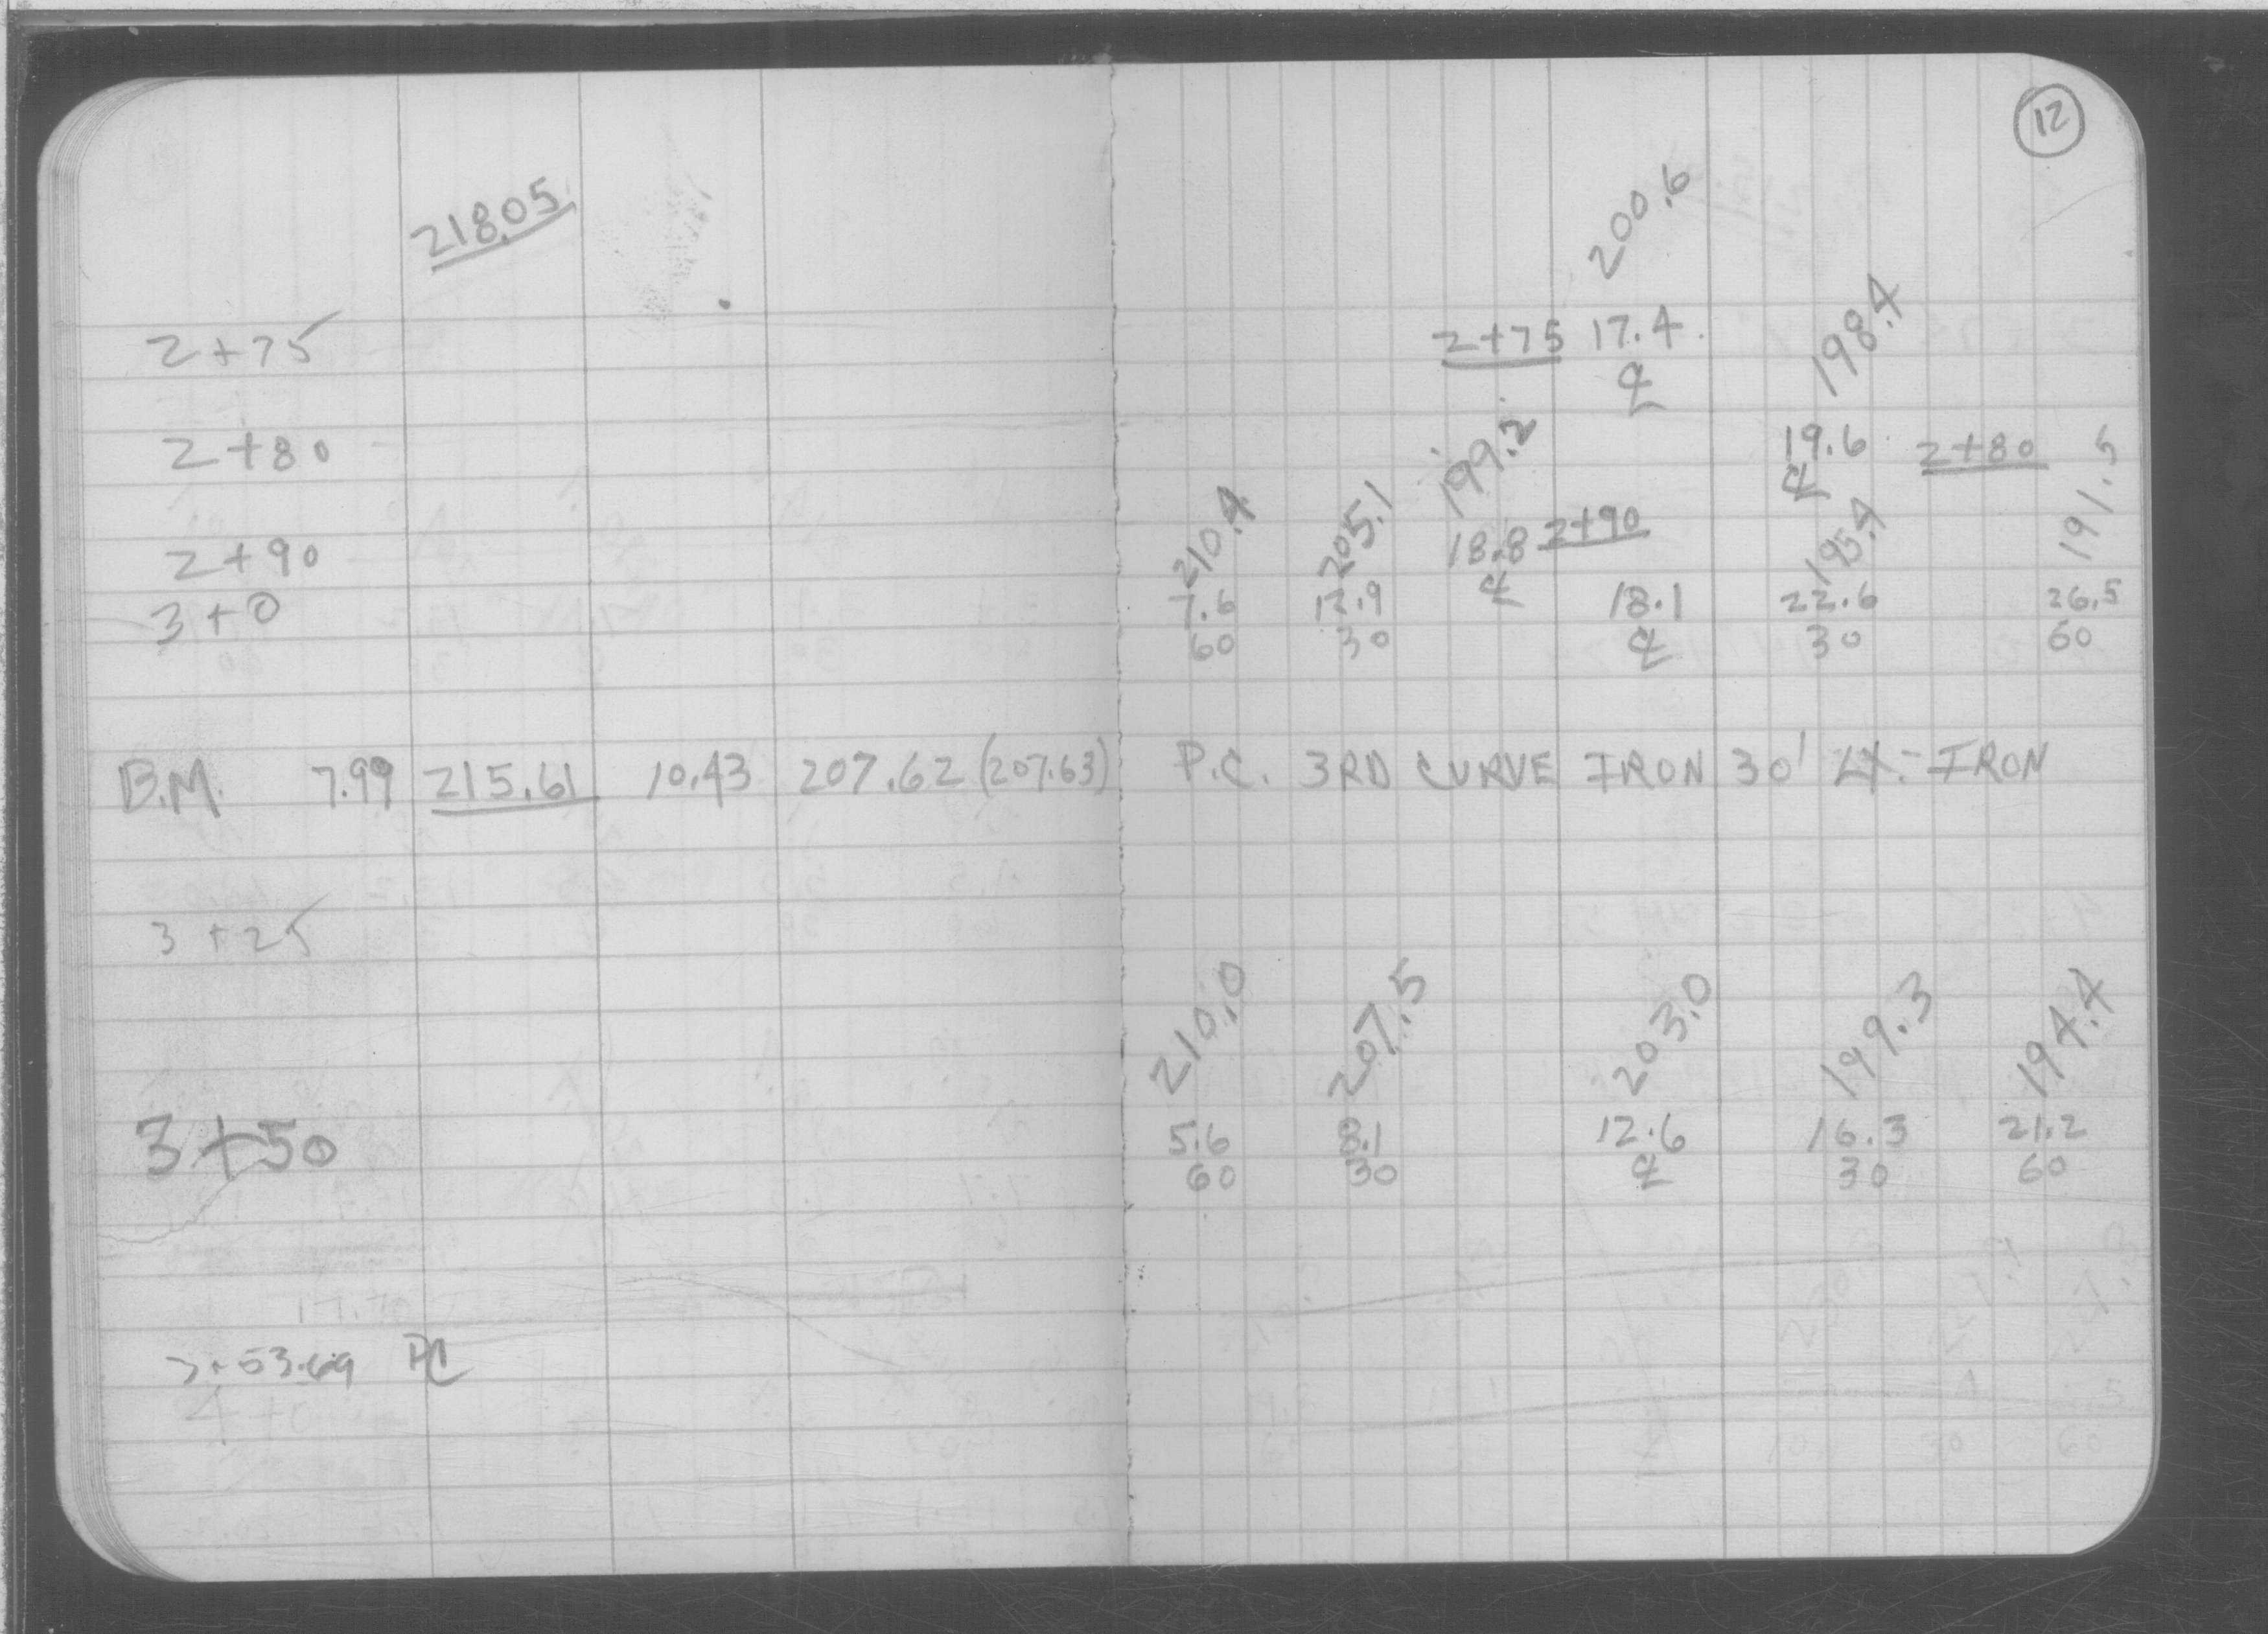 12
218.05
200.6
2+75 2+75 17.4
℄
198.4
2+80 19.6 2+80
℄
199.2
210.4 205.1 195.4 191.5
2+90 18.8 2+90
℄
3+0 7.6 12.9 18.1 22.6 26.5
60 30 ℄ 30 60
B.M. 7.99 215.61 10.43 207.62 (207.63) P.C. 3RD CURVE IRON 30' LT.- IRON
3+25
210.0 207.5 203.0 199.3 194.4
3+50 5.6 8.1 12.6 16.3 21.2
60 30 ℄ 30 60
3+53.69 PC
4+0